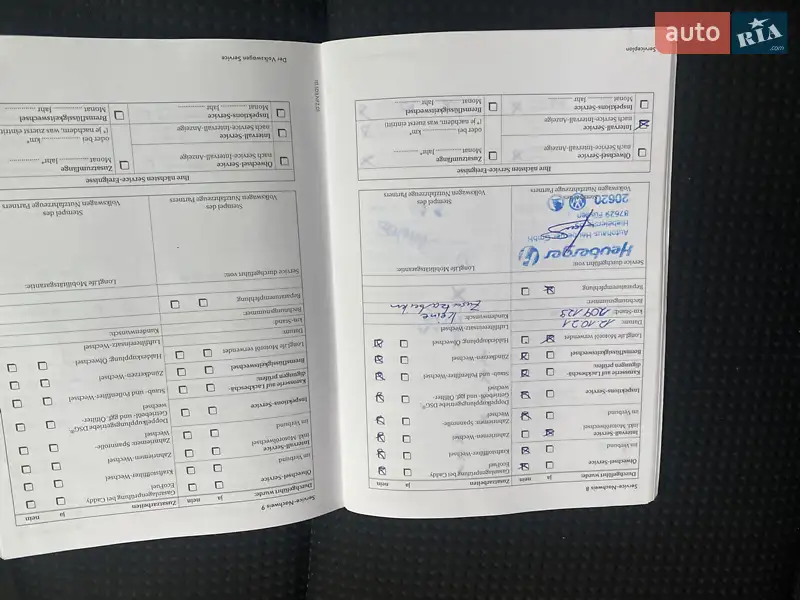 auto RIA .com
Serviceplan
Service-Nachweis 8
Durchgeführt wurde: ja nein
Ölwechsel-Service
im Verbund
Intervall-Service
inkl. Motorölwechsel
im Verbund
Inspektions-Service
Karosserie auf Lackbeschä-
digungen prüfen:
Bremsflüssigkeitswechsel
LongLife Motoröl verwendet
Datum: 12.10.21
km-Stand: 209.123
Rechnungsnummer:
Reparaturempfehlung
Zusatzarbeiten ja nein
Gasanlagenprüfung bei Caddy
EcoFuel
Kraftstofffilter-Wechsel
Zahnriemen-Wechsel
Zahnriemen- Spannrolle-
Wechsel
Doppelkupplungsgetriebe DSG®
Getriebeöl- und ggf. Ölfilter-
wechsel
Staub- und Pollenfilter-Wechsel
Zündkerzen-Wechsel
Haldexkupplung Ölwechsel
Luftfiltereinsatz-Wechsel
Kundenwunsch: keine
Zusatzarbeiten
Service durchgeführt von:
Heuberger
Autohaus Heuberger GmbH
87629 Füssen
20620
Volkswagen Nutzfahrzeuge Partners
LongLife Mobilitätsgarantie:
Stempel des
Volkswagen Nutzfahrzeuge Partners
Ihre nächsten Service-Ereignisse
Ölwechsel-Service
nach Service-Intervall-Anzeige
Intervall-Service
nach Service-Intervall-Anzeige
Inspektions-Service
Monat .......... Jahr ..........
Zusatzumfänge
Monat .......... Jahr* ..........
oder bei .......... km*
(* je nachdem, was zuerst eintritt)
Bremsflüssigkeitswechsel
Monat .......... Jahr ..........
Der Volkswagen Service
Service-Nachweis 9
Durchgeführt wurde: ja nein
Ölwechsel-Service
im Verbund
Intervall-Service
inkl. Motorölwechsel
im Verbund
Inspektions-Service
Karosserie auf Lackbeschä-
digungen prüfen:
Bremsflüssigkeitswechsel
LongLife Motoröl verwendet
Datum:
km-Stand:
Rechnungsnummer:
Reparaturempfehlung
Zusatzarbeiten ja nein
Gasanlagenprüfung bei Caddy
EcoFuel
Kraftstofffilter-Wechsel
Zahnriemen-Wechsel
Zahnriemen- Spannrolle-
Wechsel
Doppelkupplungsgetriebe DSG®
Getriebeöl- und ggf. Ölfilter-
wechsel
Staub- und Pollenfilter-Wechsel
Zündkerzen-Wechsel
Haldexkupplung Ölwechsel
Luftfiltereinsatz-Wechsel
Kundenwunsch:
Service durchgeführt von:
Stempel des
Volkswagen Nutzfahrzeuge Partners
LongLife Mobilitätsgarantie:
Stempel des
Volkswagen Nutzfahrzeuge Partners
Ihre nächsten Service-Ereignisse
Ölwechsel-Service
nach Service-Intervall-Anzeige
Intervall-Service
nach Service-Intervall-Anzeige
Inspektions-Service
Monat .......... Jahr ..........
Zusatzumfänge
Monat .......... Jahr* ..........
oder bei .......... km*
(* je nachdem, was zuerst eintritt)
Bremsflüssigkeitswechsel
Monat .......... Jahr ..........